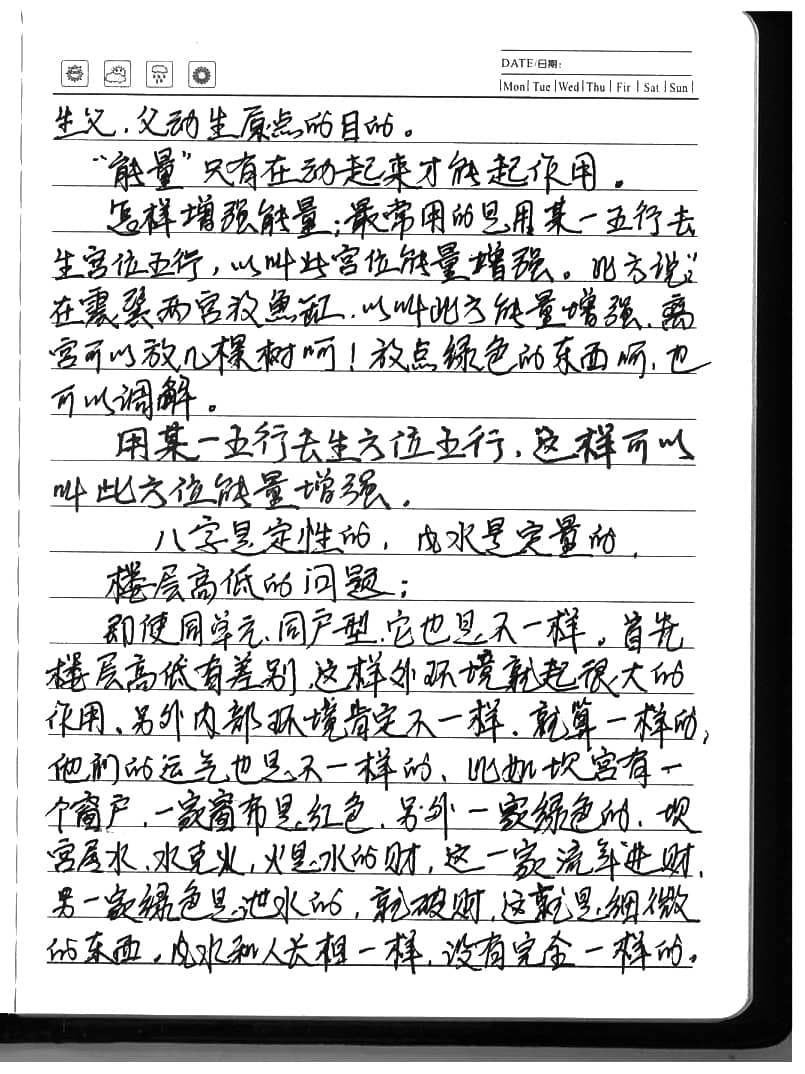 DATE/日期:
Mon Tue Wed Thu Fir Sat Sun
生父，父动生原点的目的。
“能量”只有在动起来才能起作用。
怎样增强能量：最常用的是用某一五行去
生宫位五行，以叫此宫位能量增强。比方说：
在震巽两宫放鱼缸，以叫此方能量增强，离
宫可以放几棵树呵！放点绿色的东西呵，也
可以调解。
用某一五行去生方位五行，这样可以
叫此方位能量增强。
八字是定性的，风水是定量的，
楼层高低的问题：
即使同单元、同户型，它也是不一样。首先
楼层高低有差别，这样外环境就起很大的
作用、另外内部环境肯定不一样，就算一样的，
他们的运气也是不一样的，比如坎宫有一
个窗户，一家窗布是红色，另外一家绿色的，坝
宫属水，水克火，火是水的财，这一家流年进财，
另一家绿色是泄水的，就破财，这就是细微
的东西，风水和人长相一样，没有完全一样的。